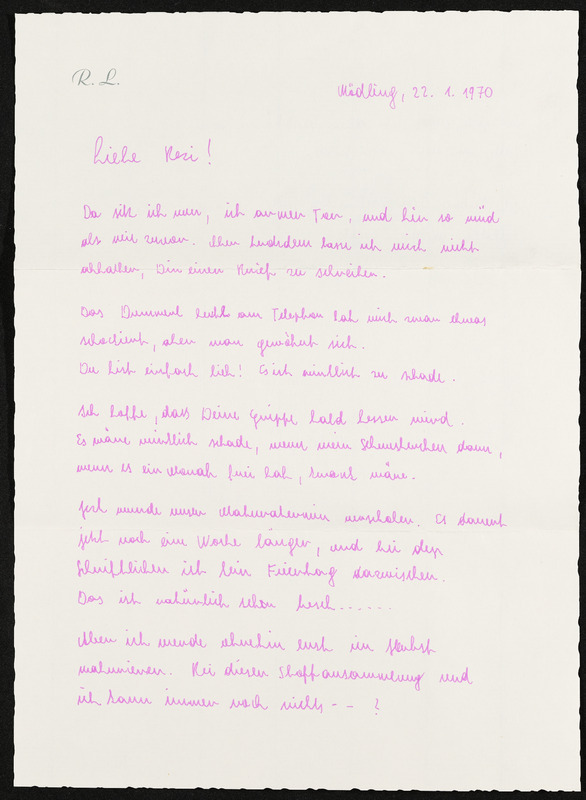 R. L.
Mödling, 22. 1. 1970
Liebe Resi!
Da sitz ich nun, ich armer Tor, und bin so müd
als wie zuvor. Aber trotzdem lasse ich mich nicht
abhalten, Dir einen Brief zu schreiben.
Das heute am Telephon hat mich zwar etwas
schockiert, aber man gewöhnt sich.
Du bist einfach lieb! Es ist wirklich zu schade.
Ich hoffe, dass Deine Grippe bald besser wird.
Es wäre wirklich schade, wenn mein Schwesterchen dann,
wenn es ein Monat frei hat, krank wäre.
Jetzt wurde unser Maturatermin verschoben. Es dauert
jetzt noch eine Woche länger, und bei den
Schriftlichen ist kein Feiertag dazwischen.
Das ist natürlich schon fesch......
Aber ich werde ohnehin erst im Herbst
maturieren. Bei dieser Stoffansammlung und
ich kann immer noch nichts -- ?